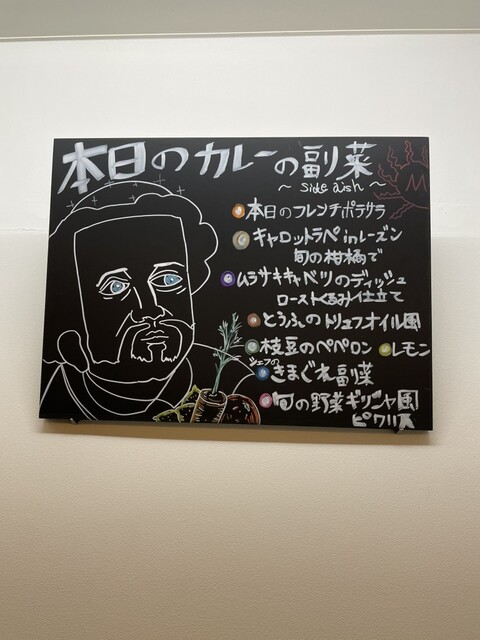 本日のカレーの副菜
～ side dish ～
本日のフレンチポテサラ
キャロットラペinレーズン
旬の柑橘で
ムラサキキャベツのディッシュ
ローストくるみ仕立て
とうふのトリュフオイル風
枝豆のペペロン レモン
シェフの
きまぐれ副菜
旬の野菜ギリシャ風
ピクルス
M